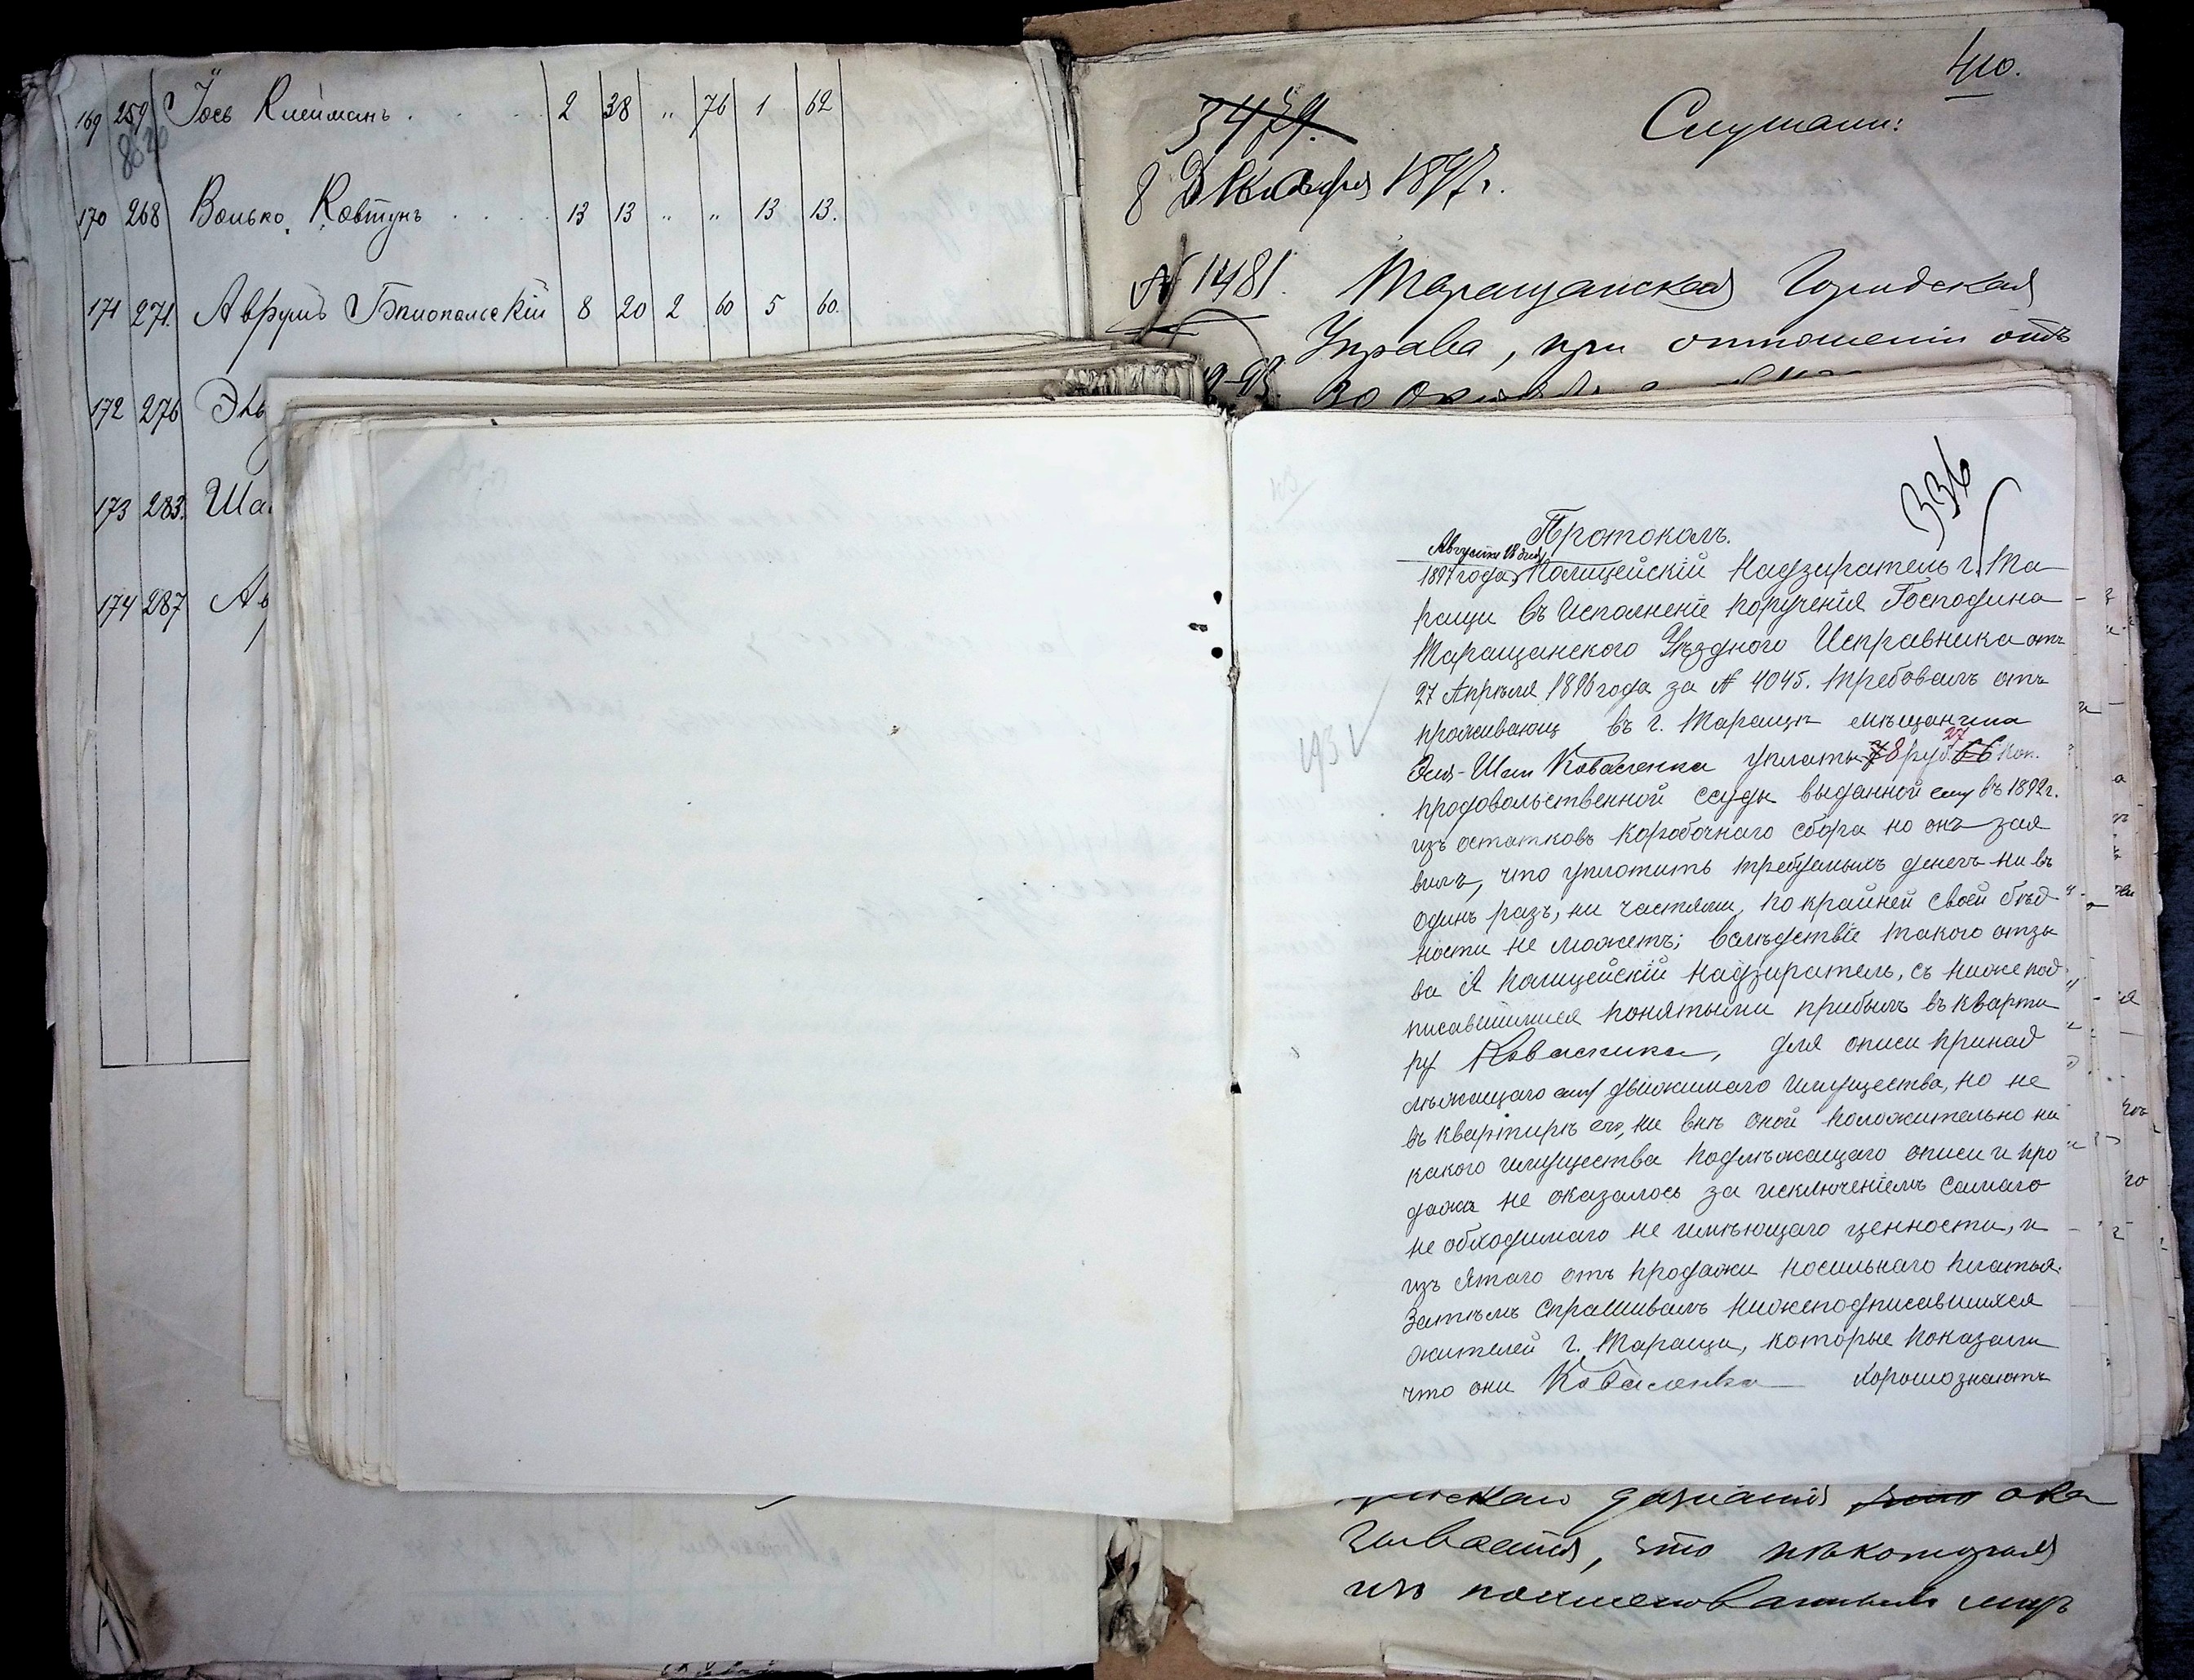 169 259 Іось Клейманъ . . . . 2 38 „ 76 1 62
170 268 Волько Ковтунъ . . . . 13 13 „ „ 13 13.
171 271. Аврумъ Бялопольскій 8 20 2 60 5 60.
172 276
173 283. Ша
174 287 Ав
410.
3479.
Слушали:
8 Декабря 1897 г.
№ 1481. Таращанская Городская
Управа, при отношеніи отъ
336
Протоколъ.
Августа 18 дня
1897 года, Полицейскій Надзиратель г. Та
ращи въ исполненіе порученія Господина
Таращанского Уѣздного Исправника отъ
27 Апрѣля 1896 года за № 4045. требовалъ отъ
проживающ въ г. Таращѣ мѣщанина
Коваленка уплаты 8 руб. 27 66 коп.
продовольственной ссуды выданной ему въ 1892 г.
изъ остатковъ коробочнаго сбора но онъ зая
вилъ, что уплотить требуемыхъ денегъ ни въ
одинъ разъ, ни частями, по крайней своей бѣд
ности не можетъ; вслѣдствіе такого отзы
ва Я Полицейскій Надзиратель, съ нижепод
писавшимися понятыми прибылъ въ кварти
ру Коваленка, для описи принад
лѣжащаго ему движимаго имущества, но не
въ квартирѣ его, ни внѣ оной положительно ни
какого имущества подлѣжащаго описи и про
дажѣ не оказалось за исключеніемъ самаго
не обходимаго не имѣющаго ценности, и
изъ ятаго отъ продажи носильнаго платья.
Затѣмъ спрашивалъ нижеподписавшихся
жителей г. Таращи, которые показали
что они Коваленка хорошо знаютъ
193 V
дознанія ока
зывается, что нѣкоторыя
изъ поименованныхъ